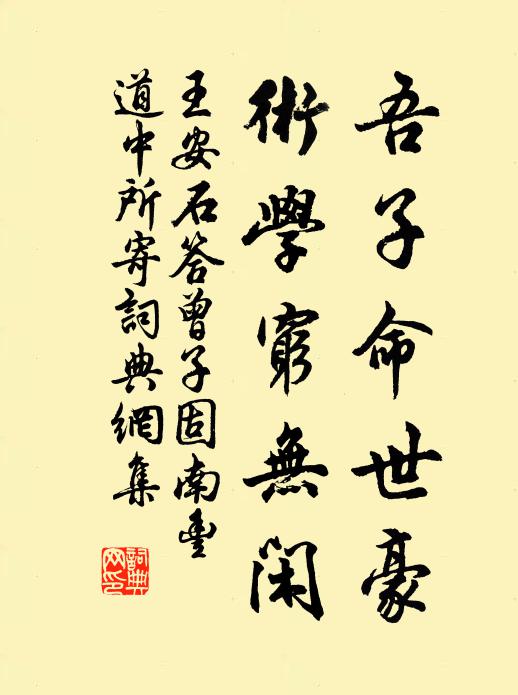 吾子命世豪
術學窮無閑
王安石答曾子固南豐
道中所寄詞典網集
詞典
网印